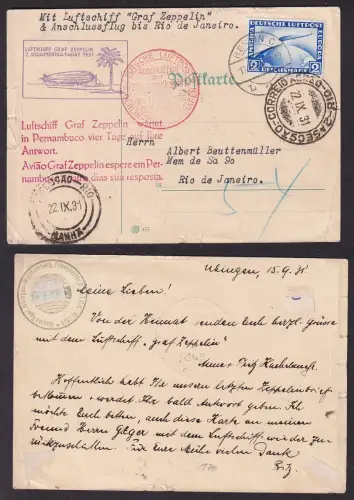 Mit Luftschiff "Graf Zeppelin"
& Anschlussflug bis Rio de Janeiro.
LUFTSCHIFF GRAF ZEPPELIN
2. SÜDAMERIKAFAHRT 1931
Postkarte
DEUTSCHE LUFTPOST
2 REICHSMARK 2
Luftschiff Graf Zeppelin wartet
in Pernambuco vier Tage auf Ihre
Antwort.
Avião Graf Zeppelin espere em Per-
nambuco quatro dias sua resposta.
Herrn
Albert Beuttenmüller
Mem de Sa 90
Rio de Janeiro.
22 IX 31
22.IX.31
MANHÃ
15.9.31
Meine Lieben!
Von der Heimat senden Euch herzl. Grüsse
mit dem Luftschiff „Graf Zeppelin"
Hoffentlich habt Ihr unsern letzten Zeppelinbrief
bekommen & werdet Ihr bald Antwort geben. Ich
möchte Euch bitten, auch diese Karte an meinen
Freund Herrn Gleger mit dem Luftschiff wieder zu-
rückzuschicken. Für Eure Mühe vielen Dank
Fritz.